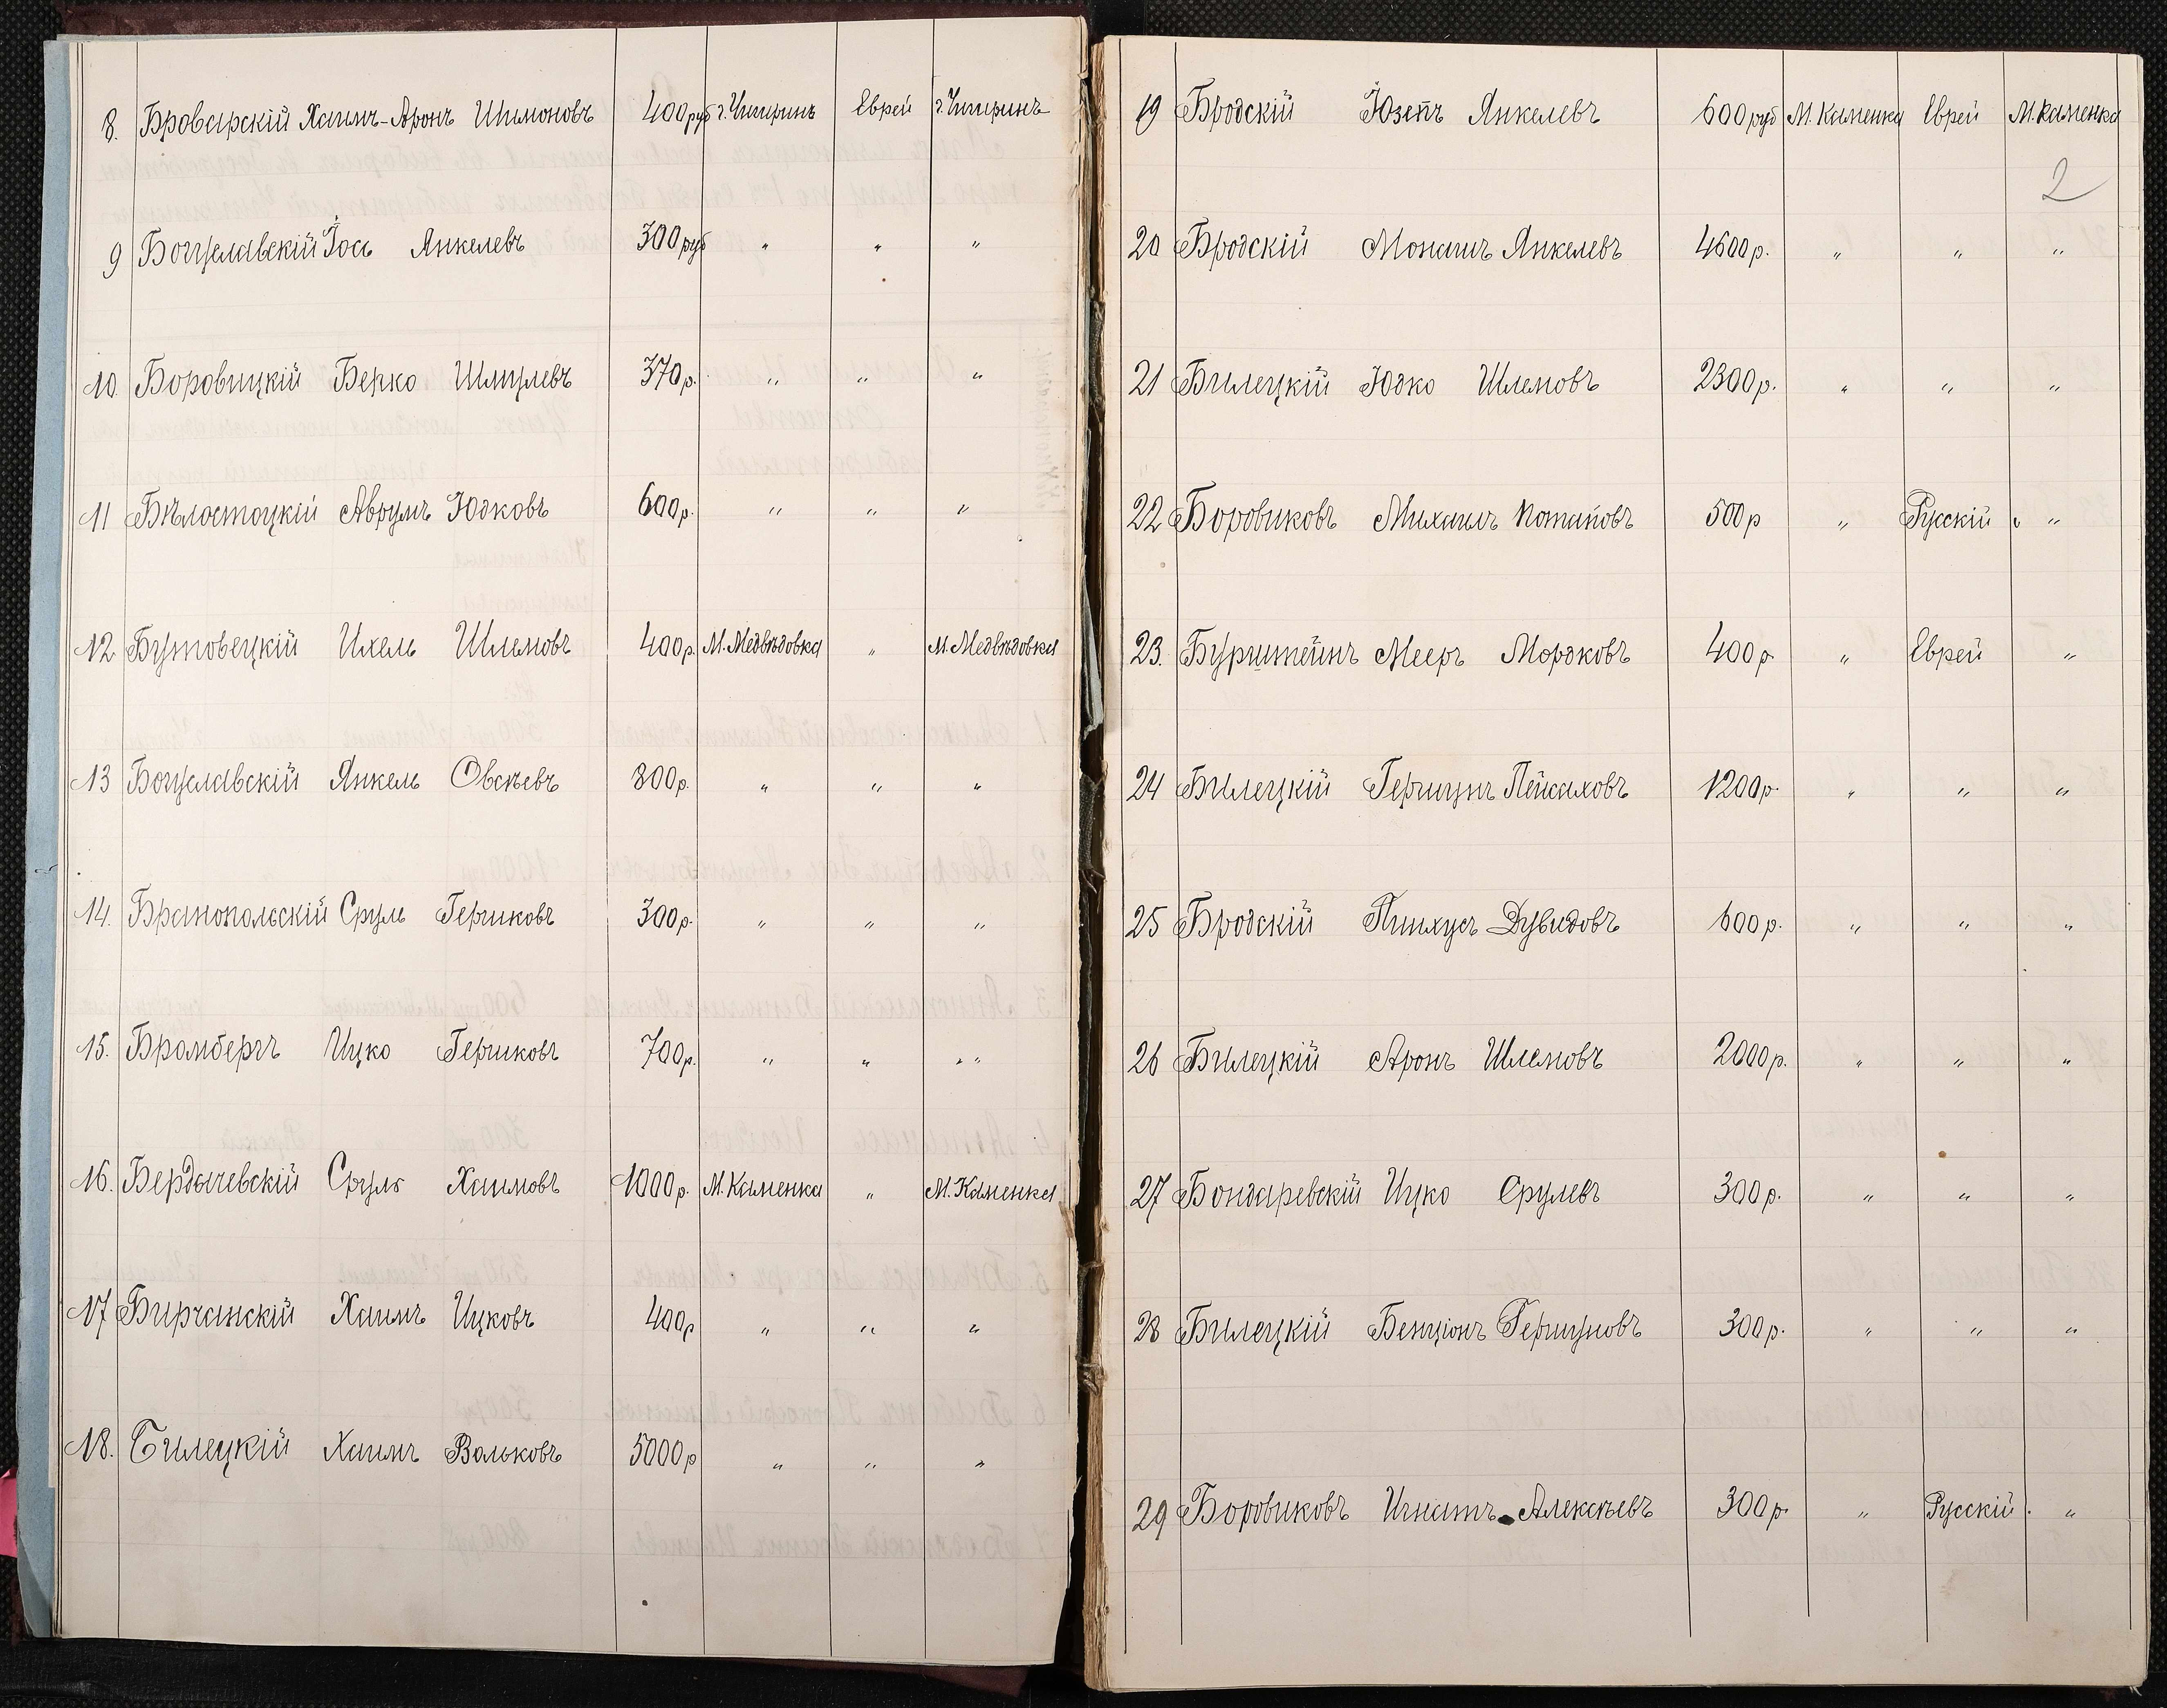 8. Броварскій Хаимъ-Аронъ Шимоновъ 400 руб г. Чигиринъ Еврей г. Чигиринъ
9 Богуславскій Іось Янкелевъ 300 руб " " "
10 Боровицкій Берко Шмулевъ 370 р. " " "
11 Бѣлостоцкій Аврумъ Юдковъ 600 р. " " "
12 Бутовецкій Ихель Шлемовъ 400 р. М. Медвѣдовка " М. Медвѣдовка
13 Богуславскій Янкель Овсѣевъ 800 р. " " "
14. Бранопольскій Сруль Гершковъ 300 р. " " "
15. Бромбергъ Ицко Гершковъ 700 р. " " "
16. Бердичевскій Сруль Хаимовъ 1000 р. М. Каменка " М. Каменка
17 Бирчанскій Хаимъ Ицковъ 400 р " " "
18. Билецкій Хаимъ Вольковъ 5000 р " " "
19 Бродскій Юзепъ Янкелевъ 600 руб М. Каменка Еврей М. Каменка
2
20 Бродскій Монашъ Янкелевъ 4600 р. " " "
21 Билецкій Юдко Шлемовъ 2300 р. " " "
22 Боровиковъ Михаилъ Потаповъ 500 р " Русскій "
23. Бурштейнъ Мееръ Мордковъ 400 р. " Еврей "
24 Билецкій Гершунъ Пейсаховъ 1200 р. " " "
25 Бродскій Пинхусъ Дувидовъ 600 р. " " "
26 Билецкій Аронъ Шлемовъ 2000 р. " " "
27 Бондаревскій Ицко Срулевъ 300 р. " " "
28 Билецкій Бенціонъ Гершуновъ 300 р. " " "
29 Боровиковъ Игнатъ Алексѣевъ 300 р. " Русскій "